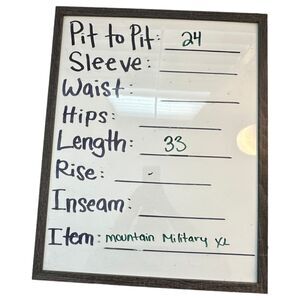 Pit to Pit: 24
Sleeve:
Waist:
Hips:
Length: 33
Rise: -
Inseam:
Item: mountain Military XL